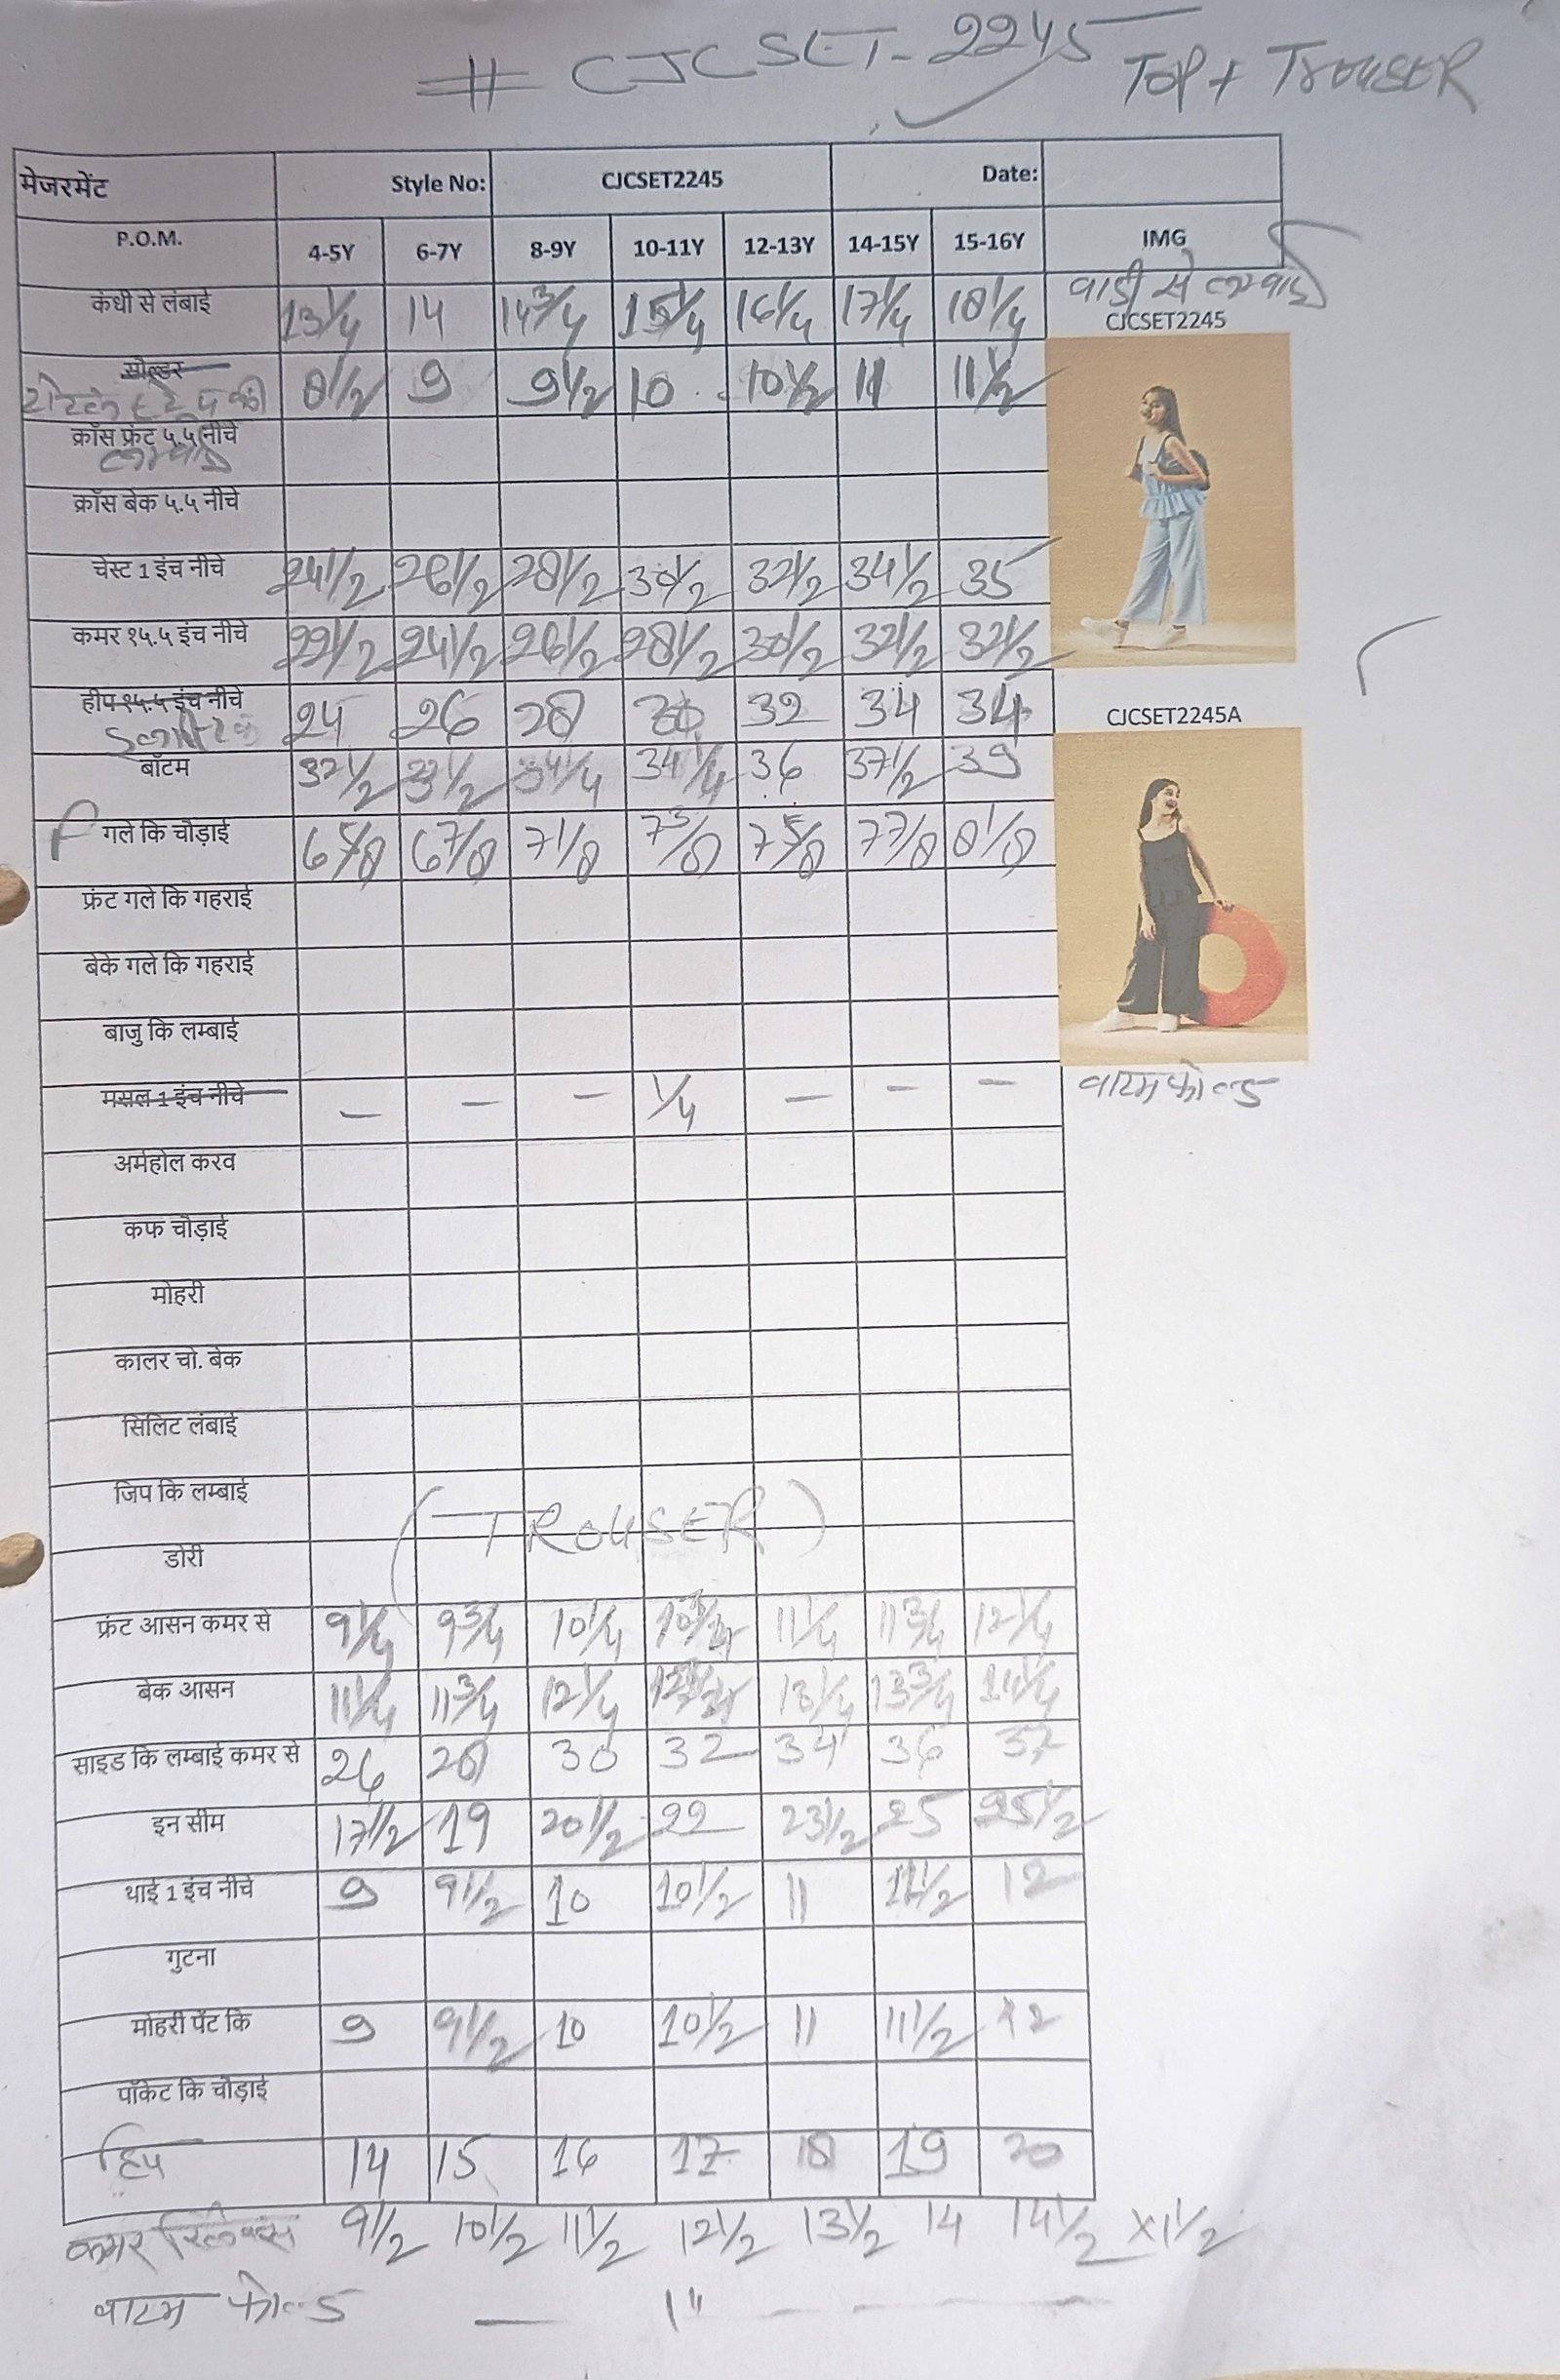 # CJCSET-2245
TOP + TROUSER
मेजरमेंट Style No: CJCSET2245 Date:
P.O.M. 4-5Y 6-7Y 8-9Y 10-11Y 12-13Y 14-15Y 15-16Y IMG
कंधी से लंबाई 13 1/4 14 14 3/4 15 1/4 16 1/4 17 1/4 18 1/4
से लम्बाई
CJCSET2245
सोल्डर 8 1/2 9 9 1/2 10 10 1/2 11 11 1/2
क्रॉस फ्रंट ५.५ नीचे
लम्बाई
क्रॉस बेक ५.५ नीचे
चेस्ट 1 इंच नीचे 24 1/2 26 1/2 28 1/2 30 1/2 32 1/2 34 1/2 35
कमर १५.५ इंच नीचे 22 1/2 24 1/2 26 1/2 28 1/2 30 1/2 32 1/2 32 1/2
हीप १५.५ इंच नीचे 24 26 28 30 32 34 34
CJCSET2245A
बॉटम 32 1/2 33 1/2 34 1/4 34 1/4 36 37 1/2 39
गले कि चौड़ाई 6 5/8 6 7/8 7 1/8 7 3/8 7 5/8 7 7/8 8 1/8
फ्रंट गले कि गहराई
बेके गले कि गहराई
बाजु कि लम्बाई
मसल 1 इंच नीचे — — — 1/4 — — —
वाटम फोल्ड
अर्महोल करव
कफ चौड़ाई
मोहरी
कालर चो. बेक
सिलिट लंबाई
जिप कि लम्बाई
(TROUSER)
डोरी
फ्रंट आसन कमर से 9 1/4 9 3/4 10 1/4 10 3/4 11 1/4 11 3/4 12 1/4
बेक आसन 11 1/4 11 3/4 12 1/4 12 3/4 13 1/4 13 3/4 14 1/4
साइड कि लम्बाई कमर से 26 28 30 32 34 36 37
इन सीम 17 1/2 19 20 1/2 22 23 1/2 25 25 1/2
थाई 1 इंच नीचे 9 9 1/2 10 10 1/2 11 11 1/2 12
गुटना
मोहरी पेंट कि 9 9 1/2 10 10 1/2 11 11 1/2 12
पॉकेट कि चौड़ाई
हिप 14 15 16 17 18 19 20
कमर रिलेक्स 9 1/2 10 1/2 11 1/2 12 1/2 13 1/2 14 14 1/2 x1 1/2
वाटम फोल्ड — 1" — — — —